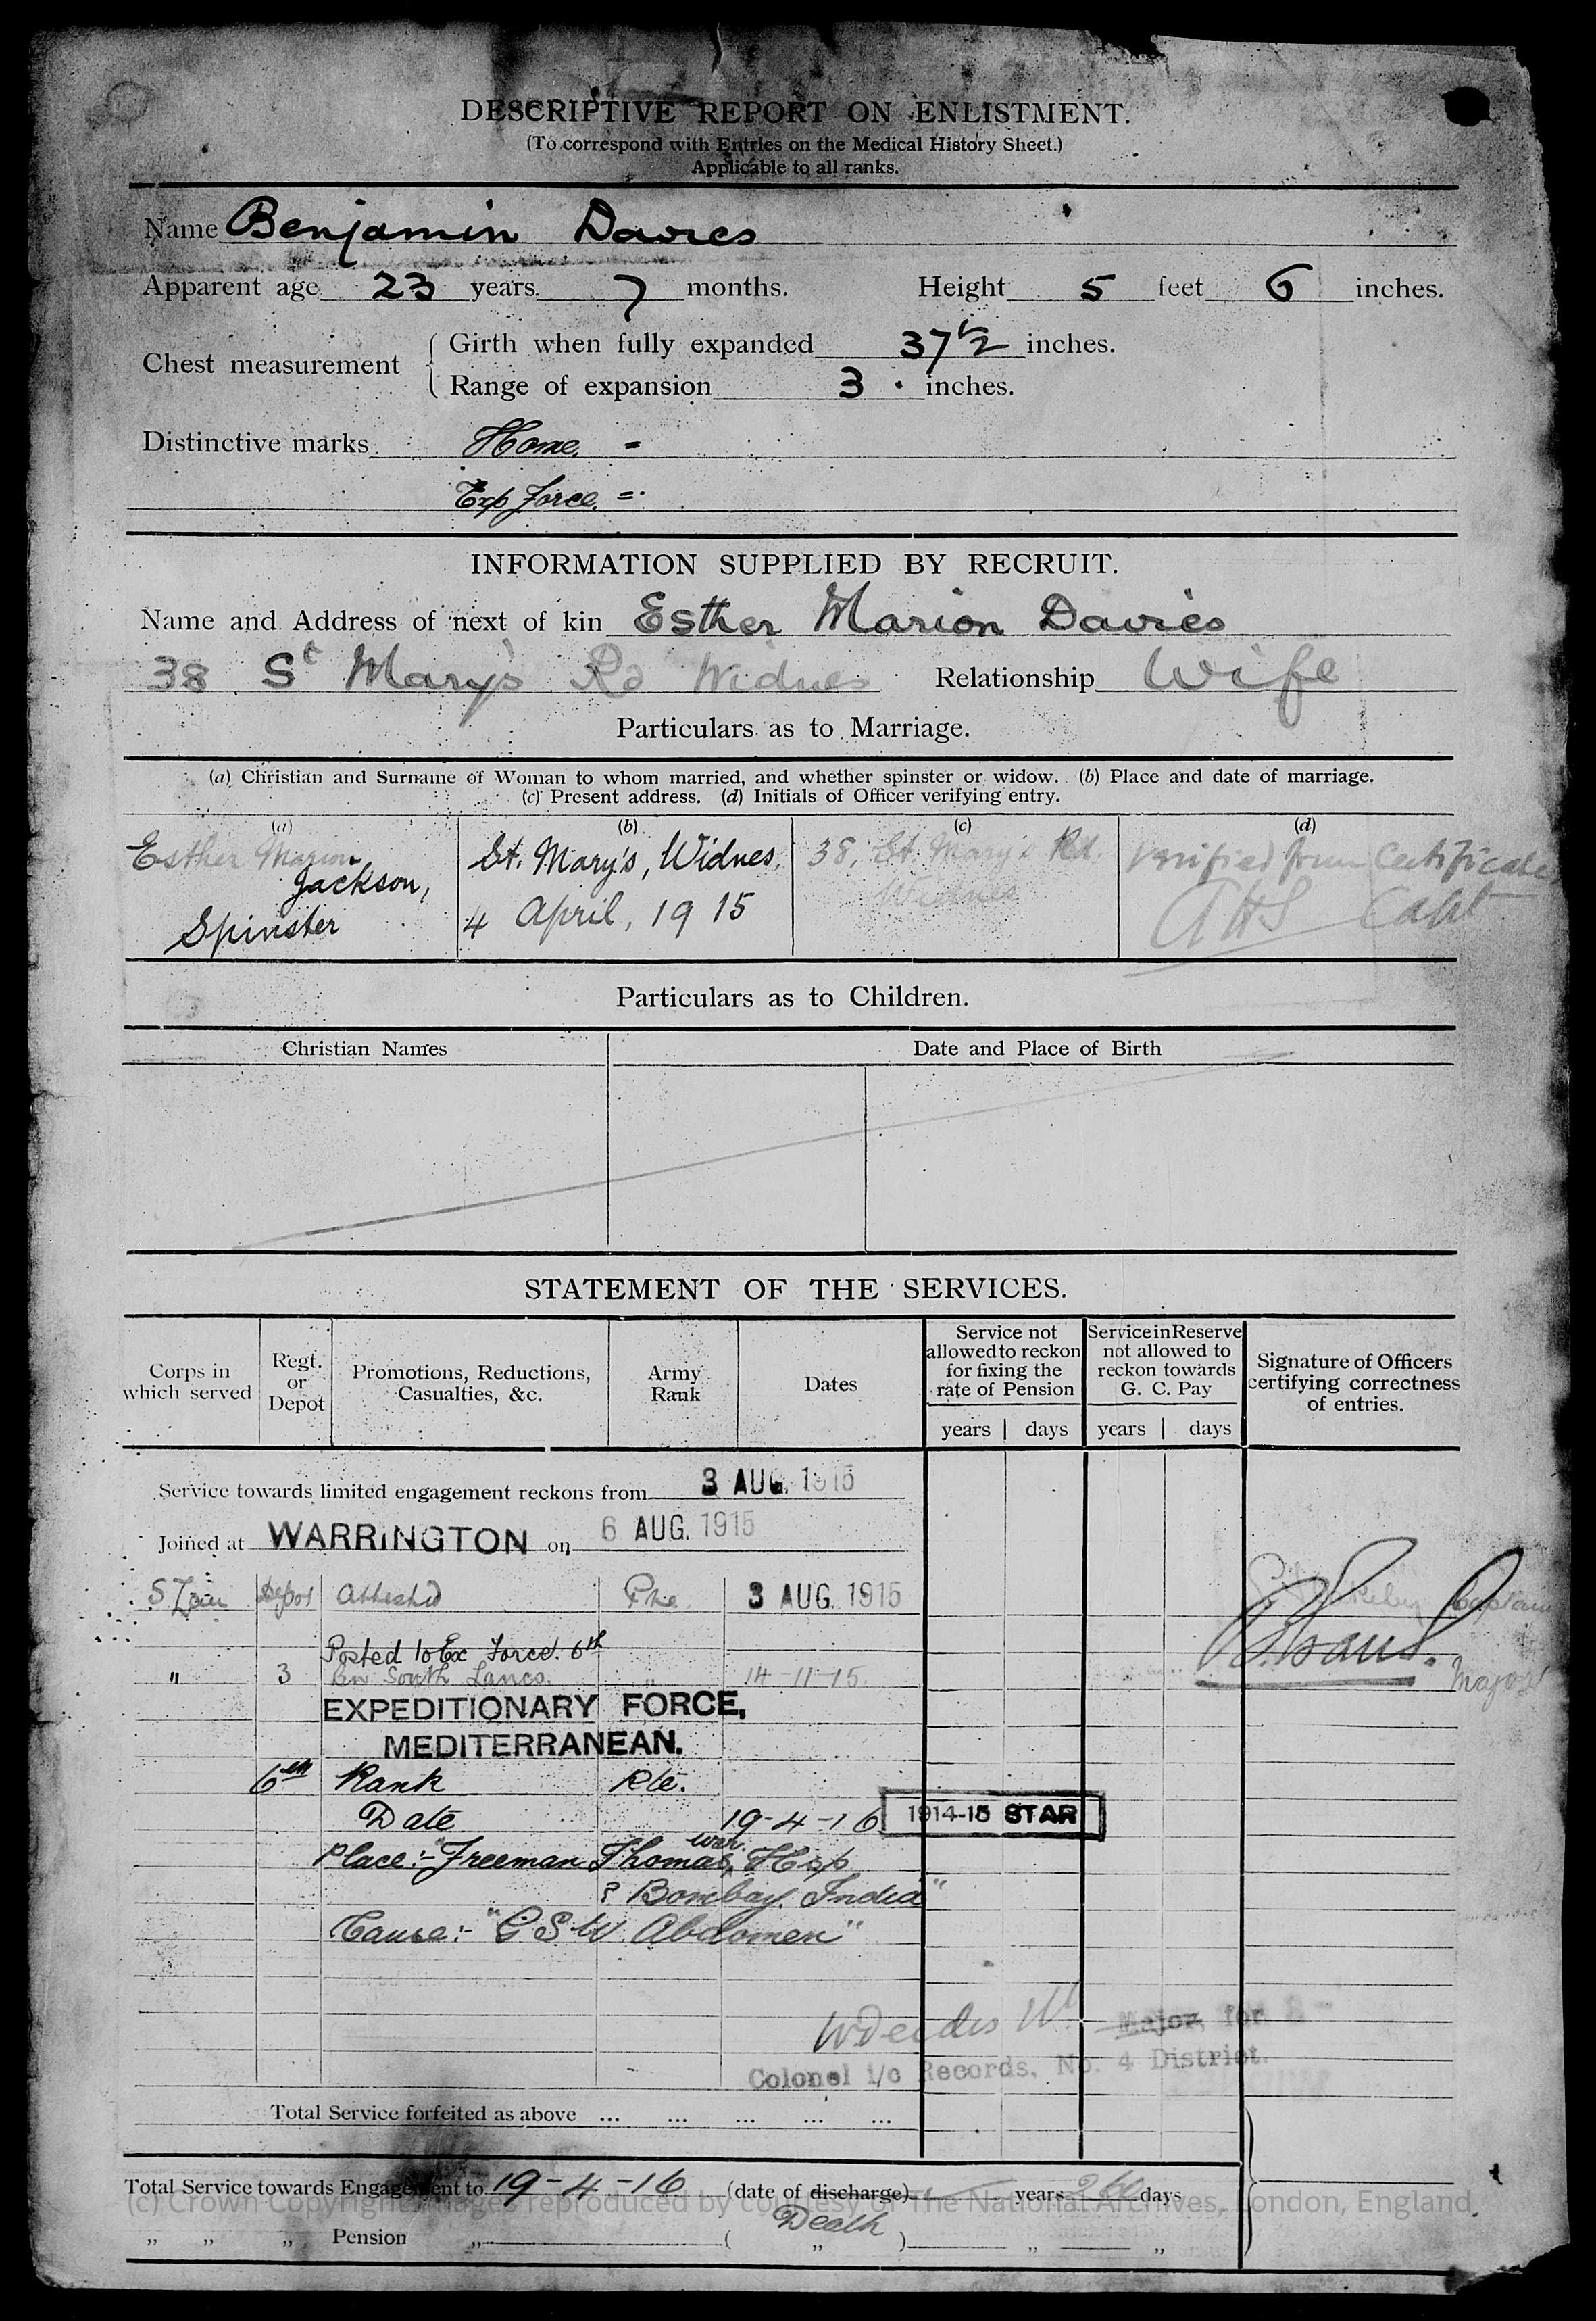 DESCRIPTIVE REPORT ON ENLISTMENT.
(To correspond with Entries on the Medical History Sheet.)
Applicable to all ranks.
Name Benjamin Davies
Apparent age 23 years 7 months. Height 5 feet 6 inches.
Chest measurement
Girth when fully expanded 37 1/2 inches.
Range of expansion 3 inches.
Distinctive marks Home. =
Exp Force. =
INFORMATION SUPPLIED BY RECRUIT.
Name and Address of next of kin Esther Marion Davies
38 St Mary's Rd Widnes Relationship Wife
Particulars as to Marriage.
(a) Christian and Surname of Woman to whom married, and whether spinster or widow. (b) Place and date of marriage.
(c) Present address. (d) Initials of Officer verifying entry.
(a) (b) (c) (d)
Esther Marion Jackson, Spinster
St. Mary's, Widnes, 4 April, 1915
38, St. Mary's Rd. Widnes
Verified from Certificate AHS Capt
Particulars as to Children.
Christian Names Date and Place of Birth
STATEMENT OF THE SERVICES.
Corps in which served
Regt. or Depot
Promotions, Reductions, Casualties, &c.
Army Rank
Dates
Service not allowed to reckon for fixing the rate of Pension
Service in Reserve not allowed to reckon towards G. C. Pay
Signature of Officers certifying correctness of entries.
years days years days
Service towards limited engagement reckons from 3 AUG. 1915
Joined at WARRINGTON on 6 AUG. 1915
S Lan Depot Attested Pte 3 AUG. 1915 Captain
Posted to Ex Force. 6th
" 3 Bn South Lancs. " 14-11-15 Major
EXPEDITIONARY FORCE,
MEDITERRANEAN.
6th Rank Pte.
Date 19-4-16 1914-15 STAR
Place:- "Freeman Thomas War Hosp
? Bombay. India"
Cause:- "G S W Abdomen"
Major, for
Colonel i/c Records, No. 4 District.
Total Service forfeited as above ... ... ... ... ...
Total Service towards Engagement to 19-4-16 (date of discharge) years 260 days
Death
" " " Pension " ( " ) " "
(c) Crown Copyright Images reproduced by courtesy of The National Archives, London, England.